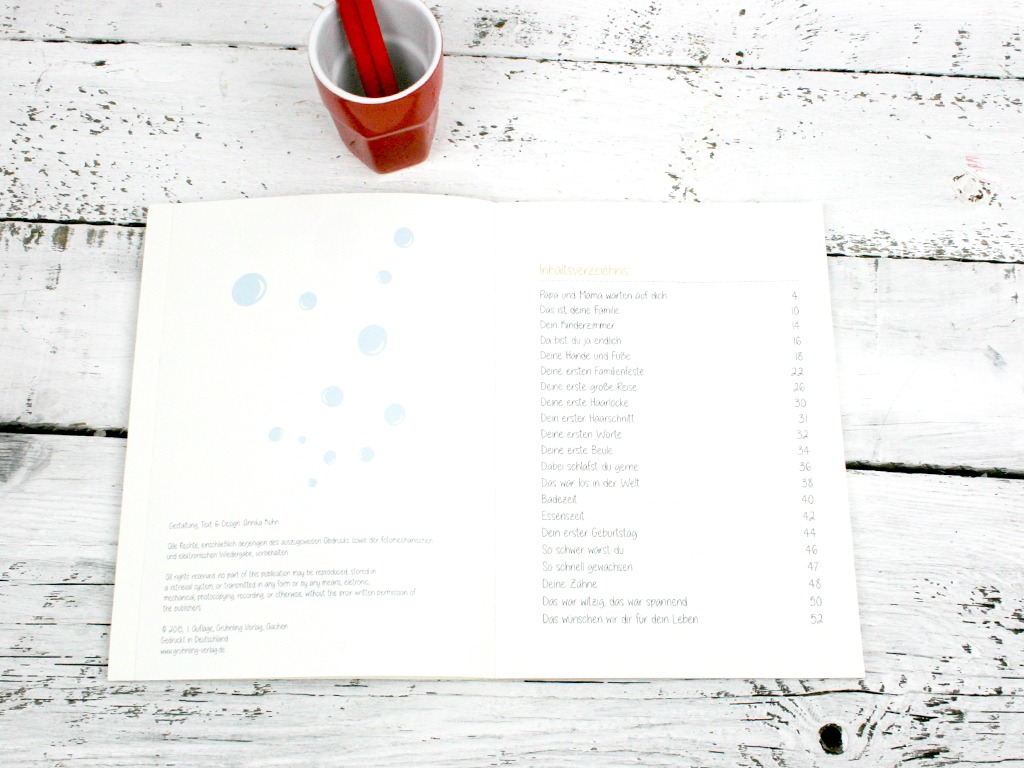 Gestaltung, Text & Design: Annika Kuhn
Alle Rechte, einschließlich derjenigen des auszugsweisen Abdrucks sowie der fotomechanischen
und elektronischen Wiedergabe, vorbehalten.
All rights reserved, no part of this publication may be reproduced, stored in
a retrieval system, or transmitted in any form or by any means, eletronic,
mechanical, photocopying, recording, or otherwise, without the prior written permission of
the publishers
© 2015, 1. Auflage, Grühnling Verlag, Aachen
Gedruckt in Deutschland
www.gruhnling-verlag.de
Inhaltsverzeichnis:
Papa und Mama warten auf dich 4
Das ist deine Familie 10
Dein Kinderzimmer 14
Da bist du ja endlich 16
Deine Hände und Füße 18
Deine ersten Familienfeste 22
Deine erste große Reise 26
Deine erste Haarlocke 30
Dein erster Haarschnitt 31
Deine ersten Worte 32
Deine erste Beule 34
Dabei schläfst du gerne 36
Das war los in der Welt 38
Badezeit 40
Essenszeit 42
Dein erster Geburtstag 44
So schwer warst du 46
So schnell gewachsen 47
Deine Zähne 48
Das war witzig, das war spannend 50
Das wünschen wir dir für dein Leben 52